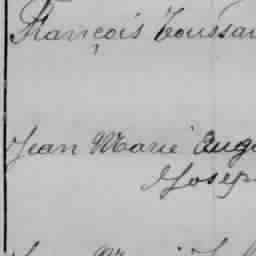 François Toussai
Jean Marie Augu
Josep